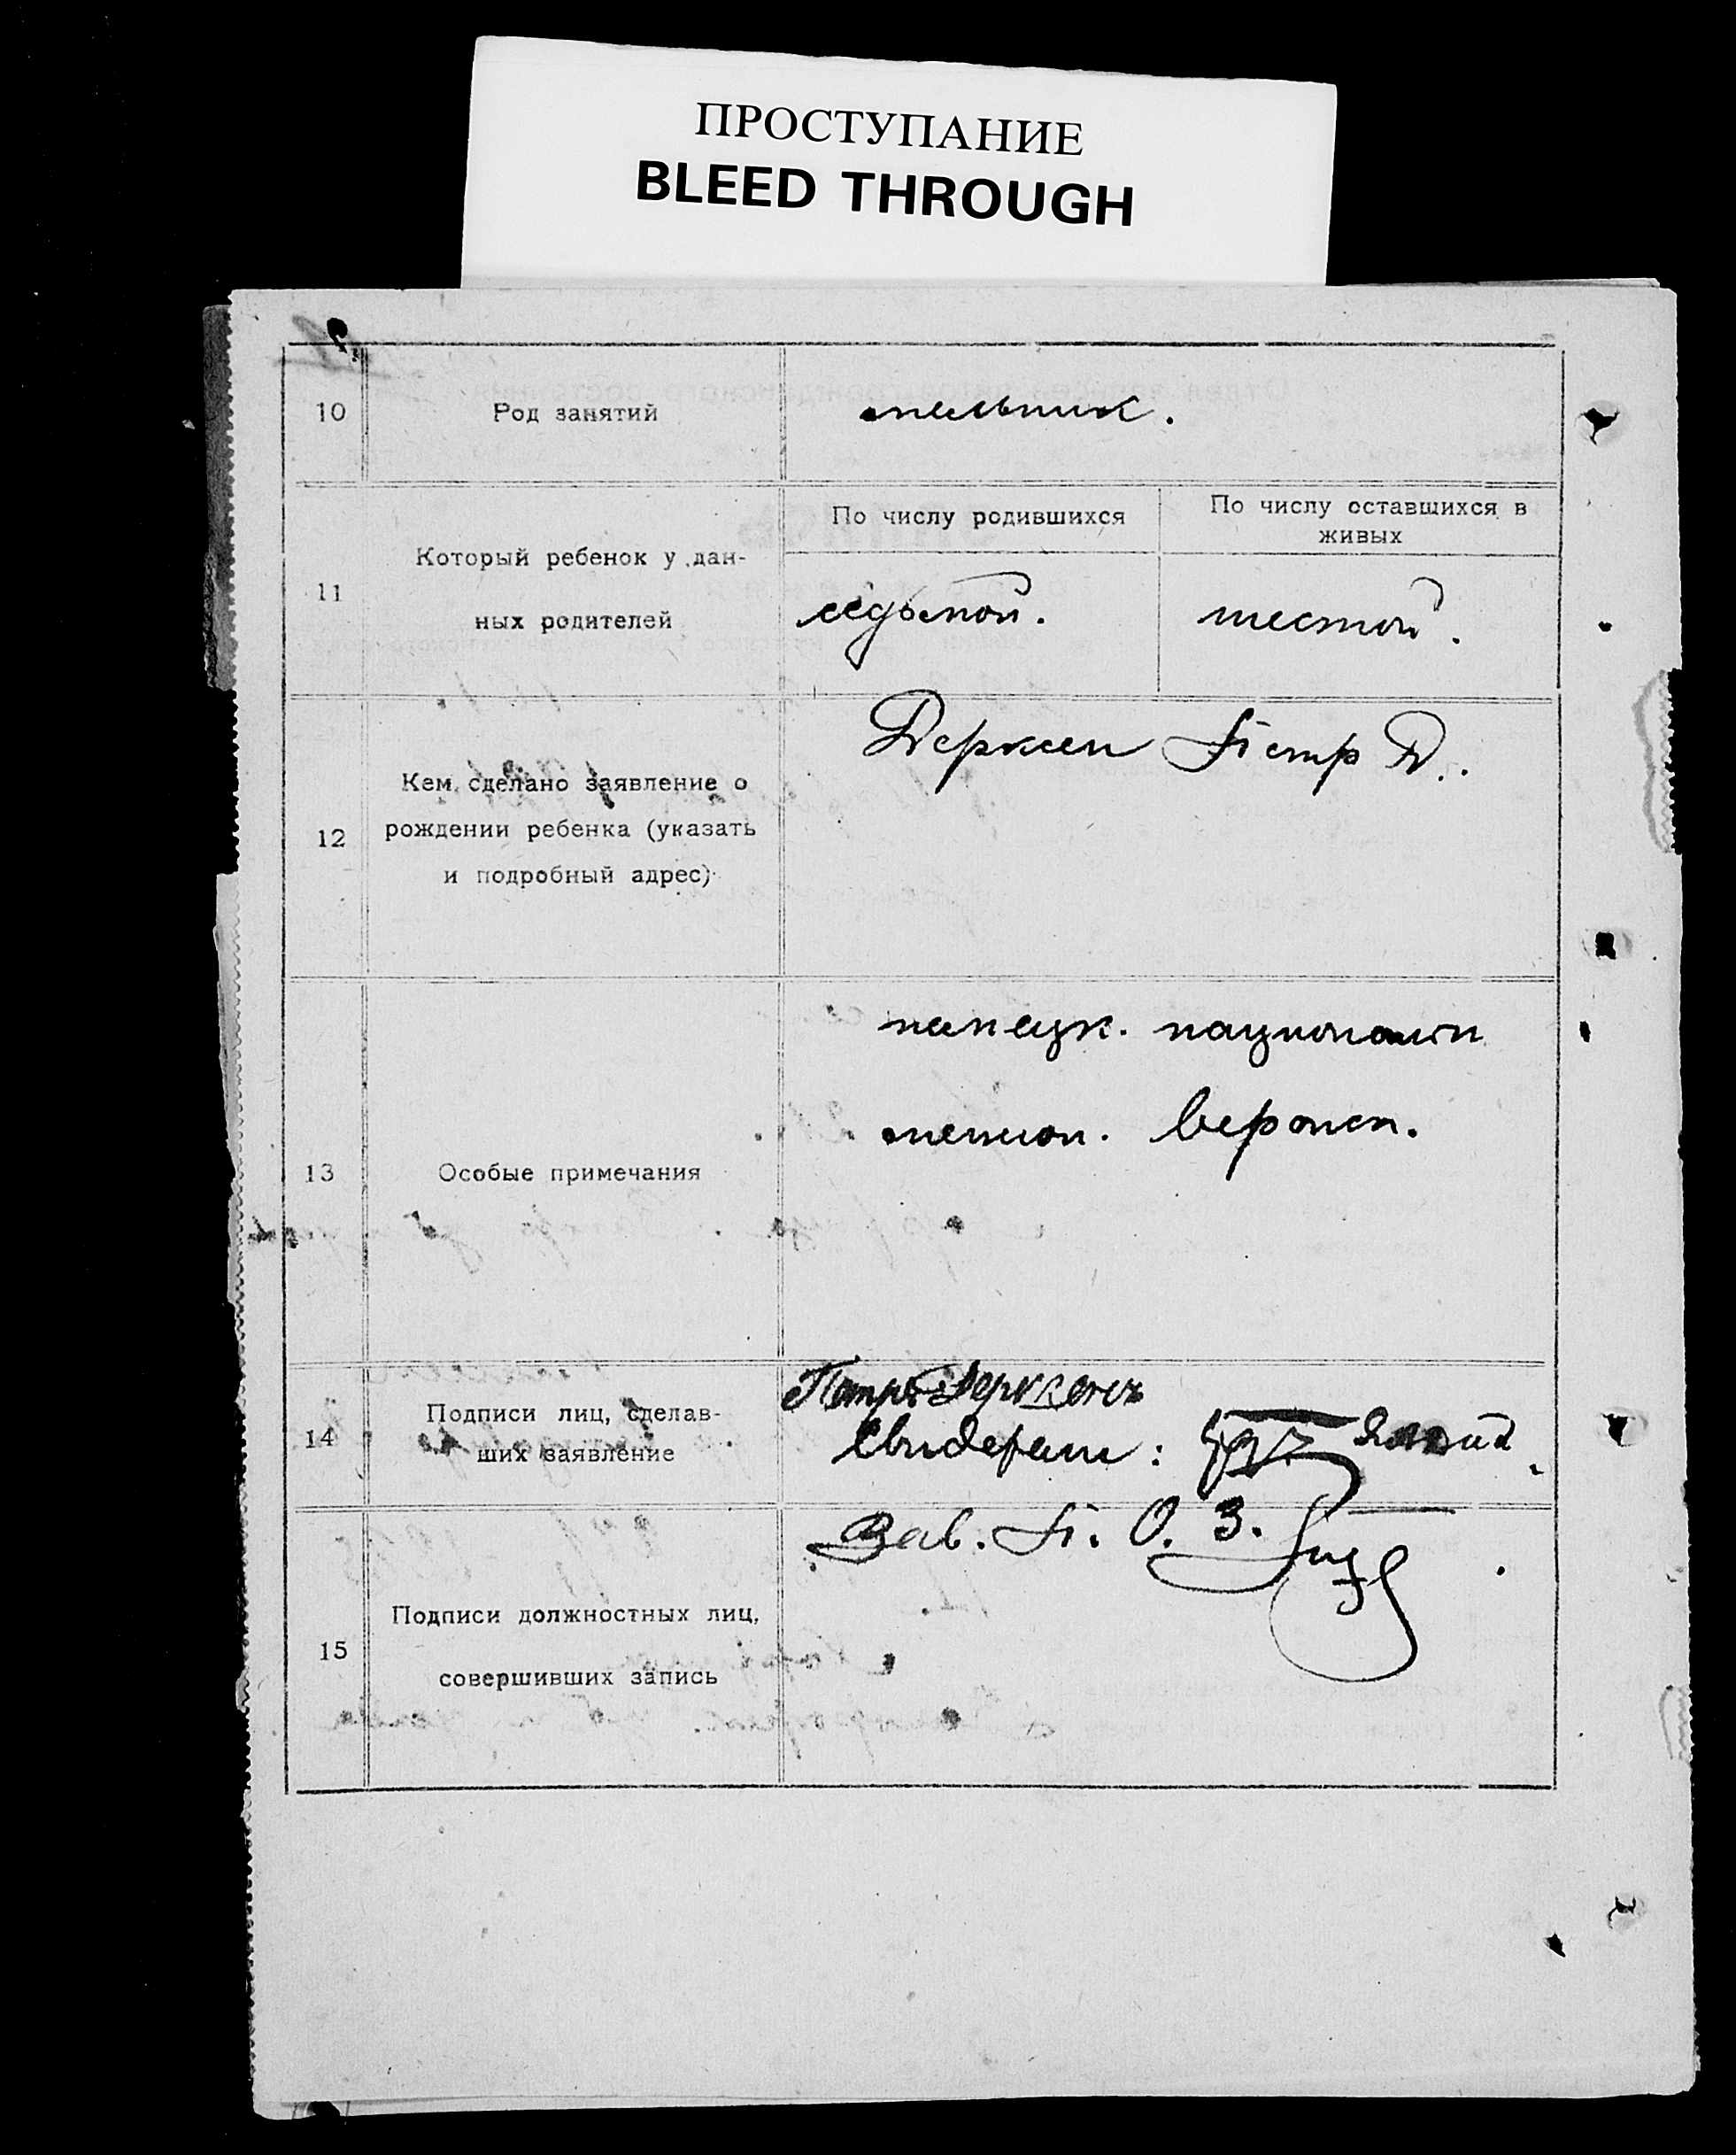 ПРОСТУПАНИЕ
BLEED THROUGH
10
Род занятий
мельник.
11
Который ребенок у дан-
ных родителей
По числу родившихся
седьмой.
По числу оставшихся в
живых
шестой.
12
Кем сделано заявление о
рождении ребенка (указать
и подробный адрес)
Дерксен Петр Д.
13
Особые примечания
немецк. национальн
менион. вероисп.
14
Подписи лиц, сделав-
ших заявление
Петръ Дерксенъ
Свидетели:
15
Подписи должностных лиц,
совершивших запись
Зав. П. О. З.